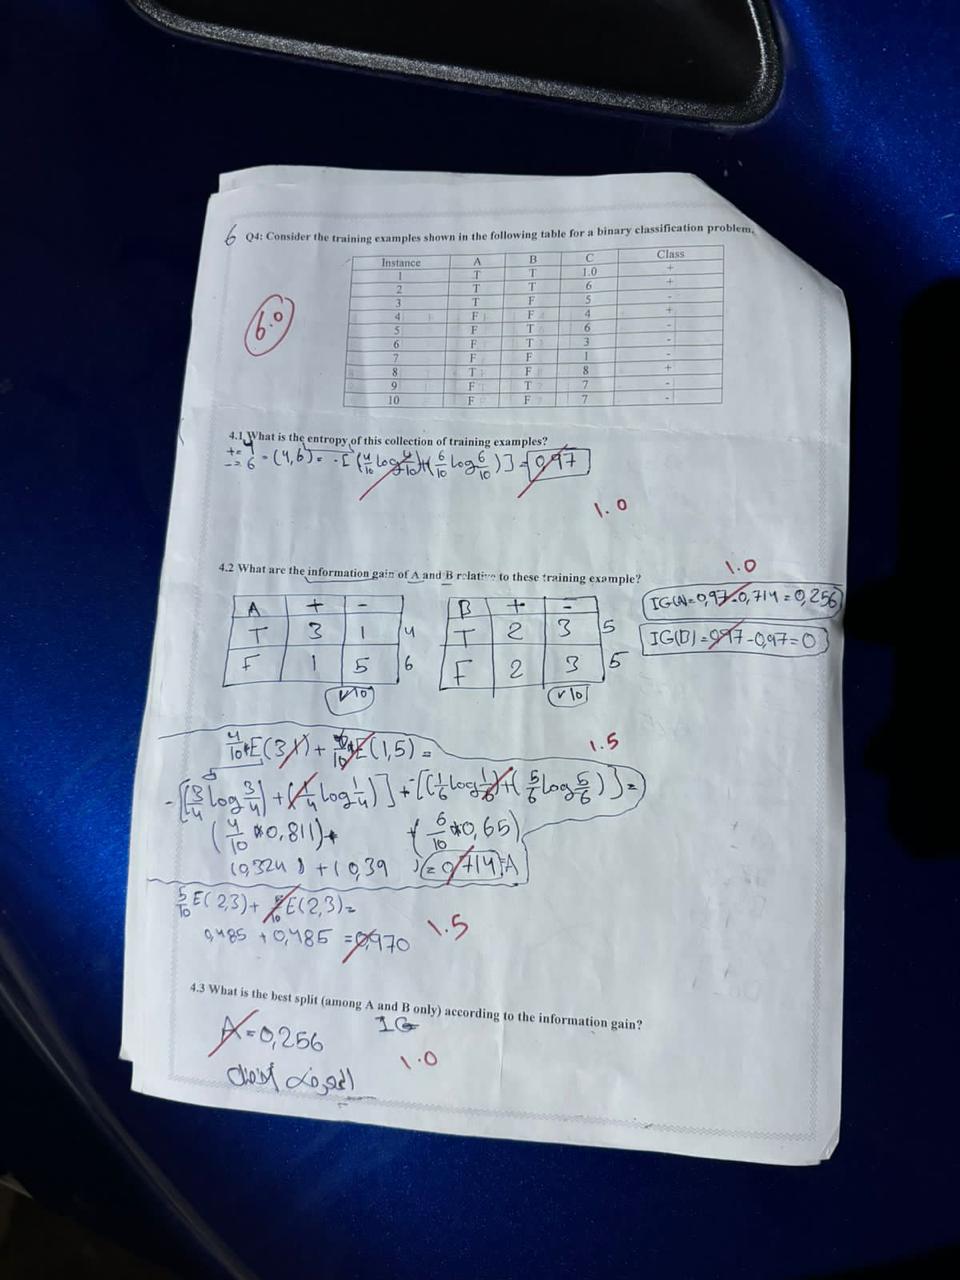 6 Q4: Consider the training examples shown in the following table for a binary classification problem.
6.0
Instance A B C Class
1 T T 1.0 +
2 T T 6 +
3 T F 5 -
4 F F 4 +
5 F T 6 -
6 F T 3 -
7 F F 1 -
8 T F 8 +
9 F T 7 -
10 F F 7 -
4.1 What is the entropy of this collection of training examples?
+=4
-=6 - (4,6) = -[(4/10 log 4/10)+(6/10 log 6/10)] = 0,97
1.0
4.2 What are the information gain of A and B relative to these training example?
1.0
A + -
T 3 1 4
F 1 5 6
√10
B + -
T 2 3 5
F 2 3 5
√10
IG(A)=0,97-0,714=0,256
IG(B)=0,97-0,97=0
4/10*E(3,1)+6/10*E(1,5)=
1.5
-[(3/4 log 3/4)+(1/4 log 1/4)]+-[(1/6 log 1/6)+(5/6 log 5/6)]=
(4/10*0,811)+(6/10*0,65)
(0,324)+(0,39)=0,714=A
5/10 E(2,3)+5/10 E(2,3)=
0,485+0,485=0,970
1.5
4.3 What is the best split (among A and B only) according to the information gain?
A=0,256 IG
1.0